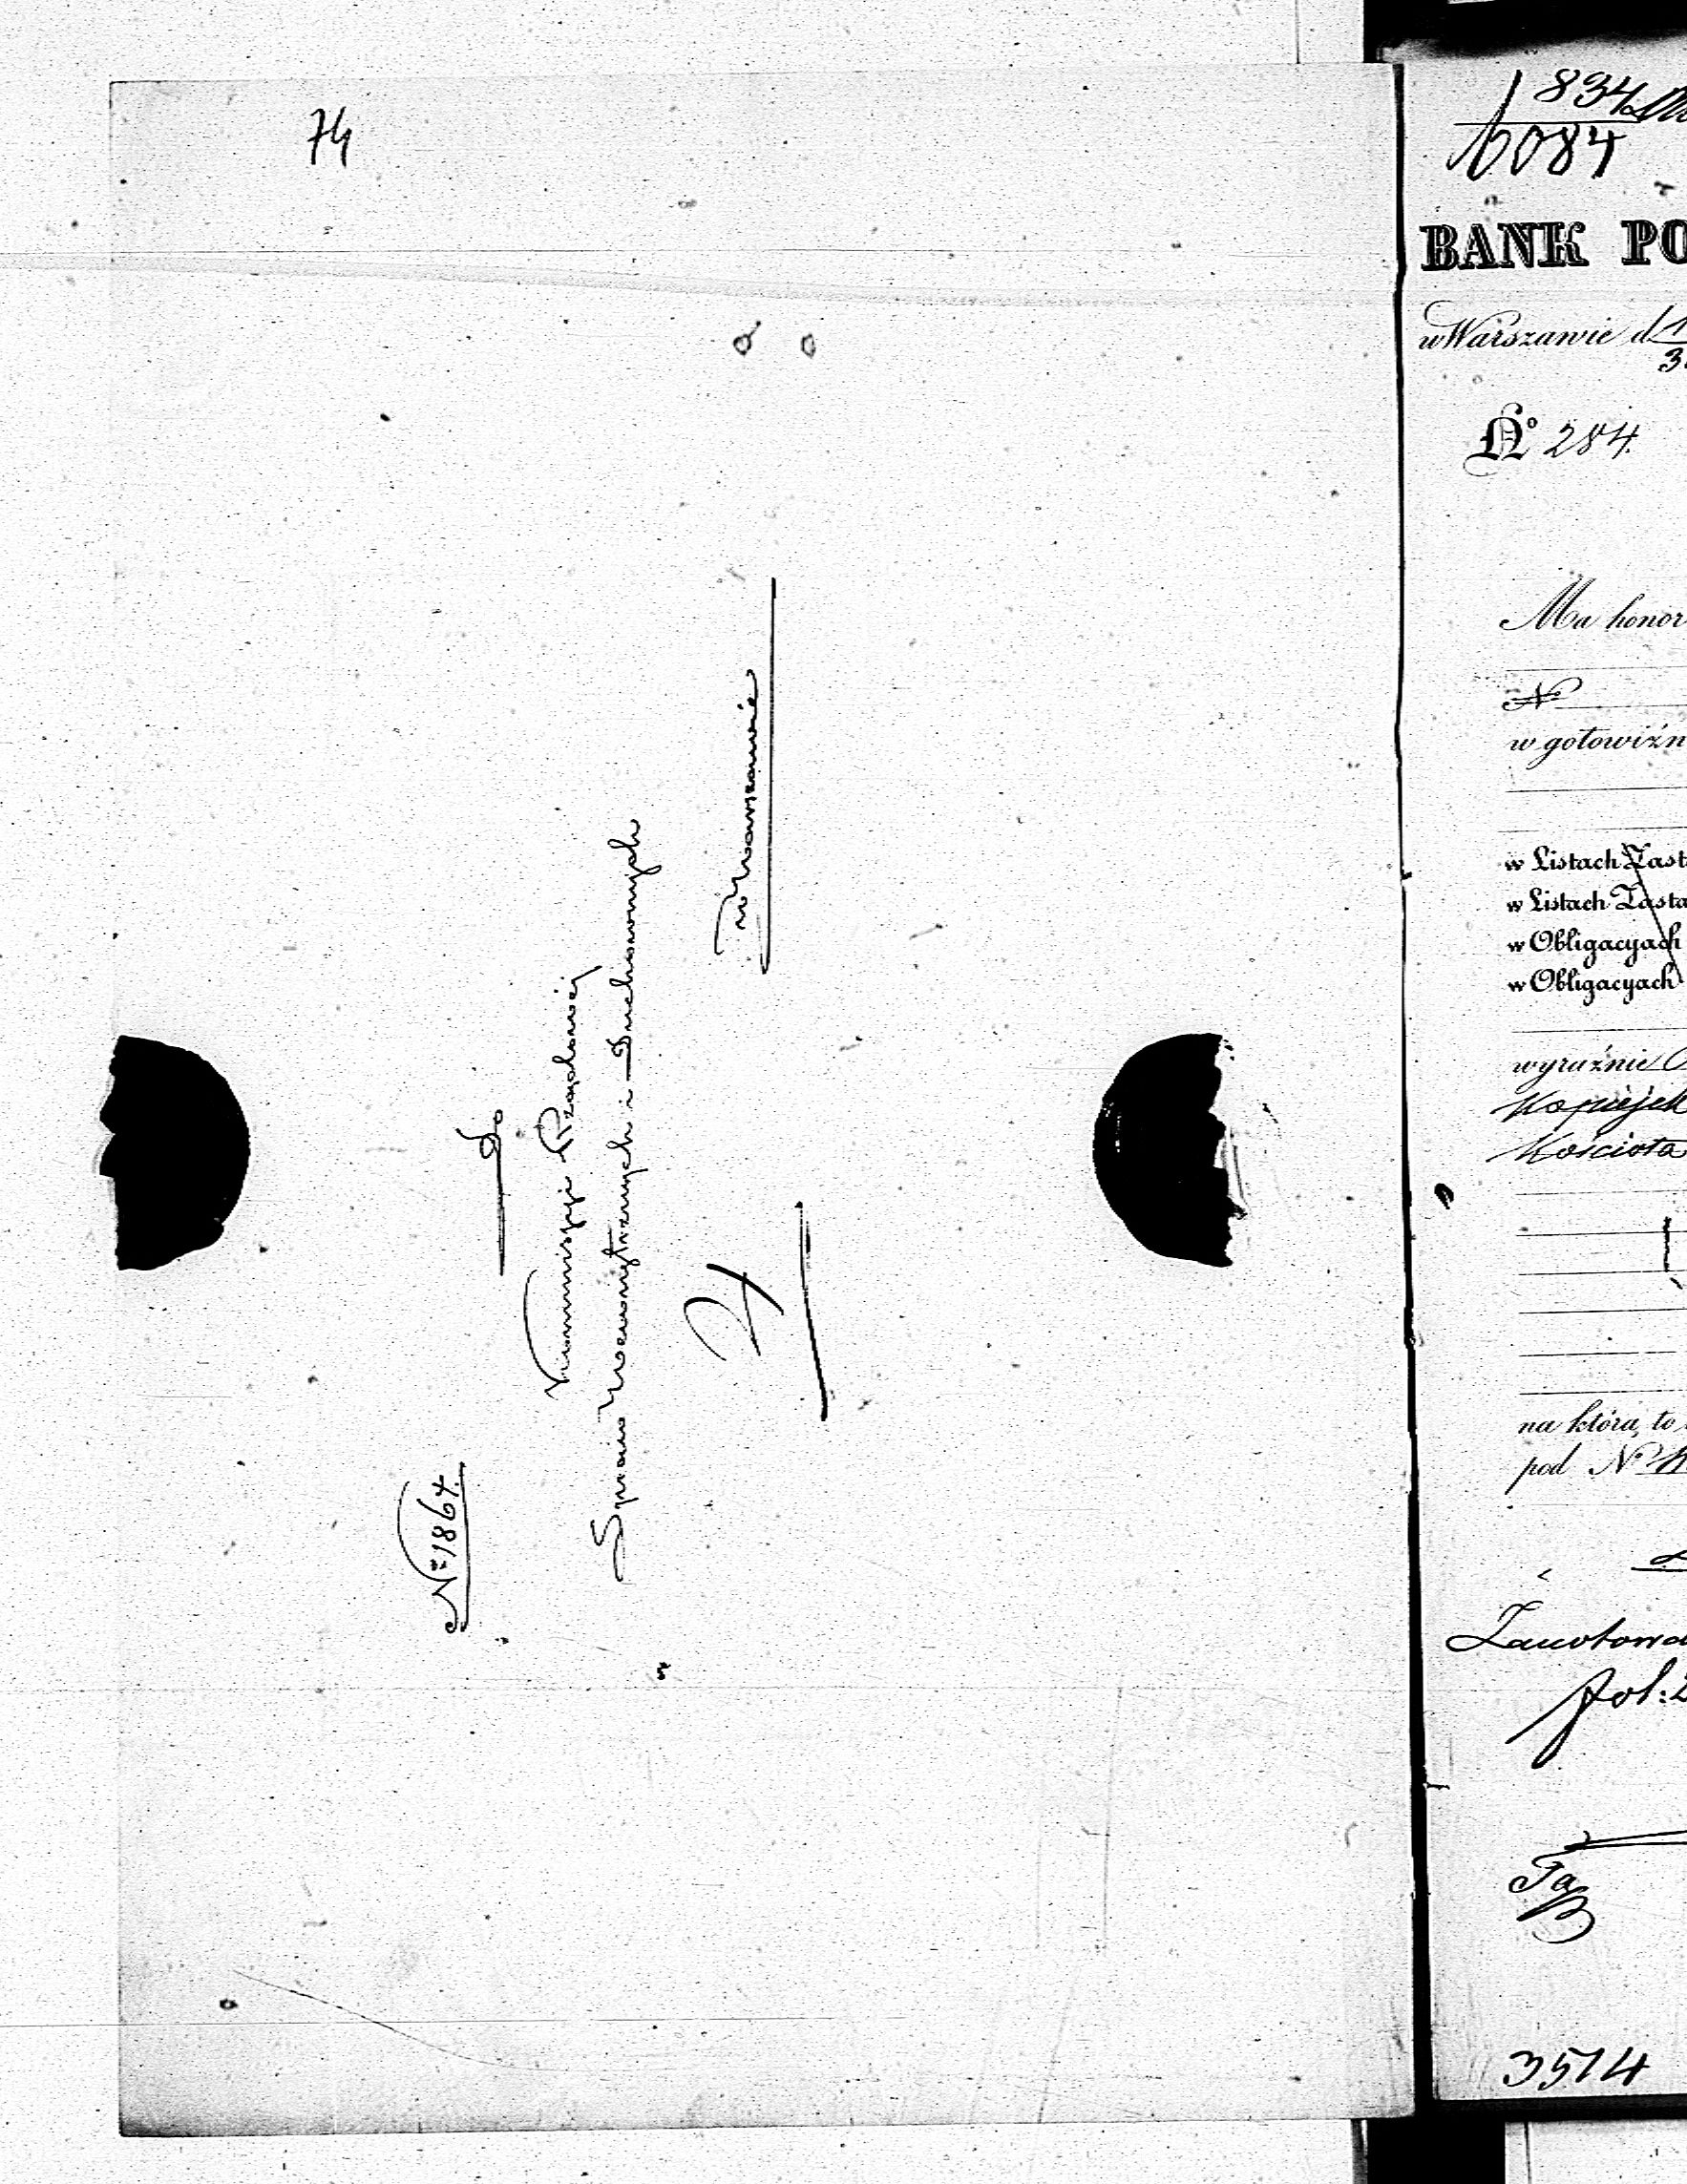 74
Nº 1864.
Do
Kommissyi Rządowéj
Spraw Wewnętrznych i Duchownych
w Warszawie
834
6084
BANK PO
w Warszawie d 1
3
Nº 284.
Ma honor
N
w gotowiźn
w Listach Zast
w Listach Zasta
w Obligacyach
w Obligacyach
wyraźnie
Kopiejek
Kościoła
na którą to
pod Nº
fol: 2
3514